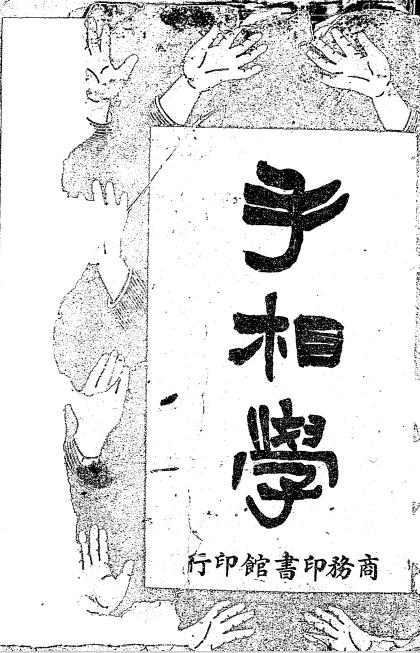 手相學
商務印書館印行